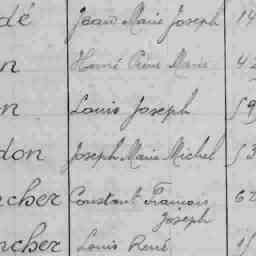 dé Jean Marie Joseph 14
n Henri Pierre Marie 42
n Louis Joseph 59
don Joseph Marie Michel 53
ncher Constant François 62
Joseph
ncher Louis René